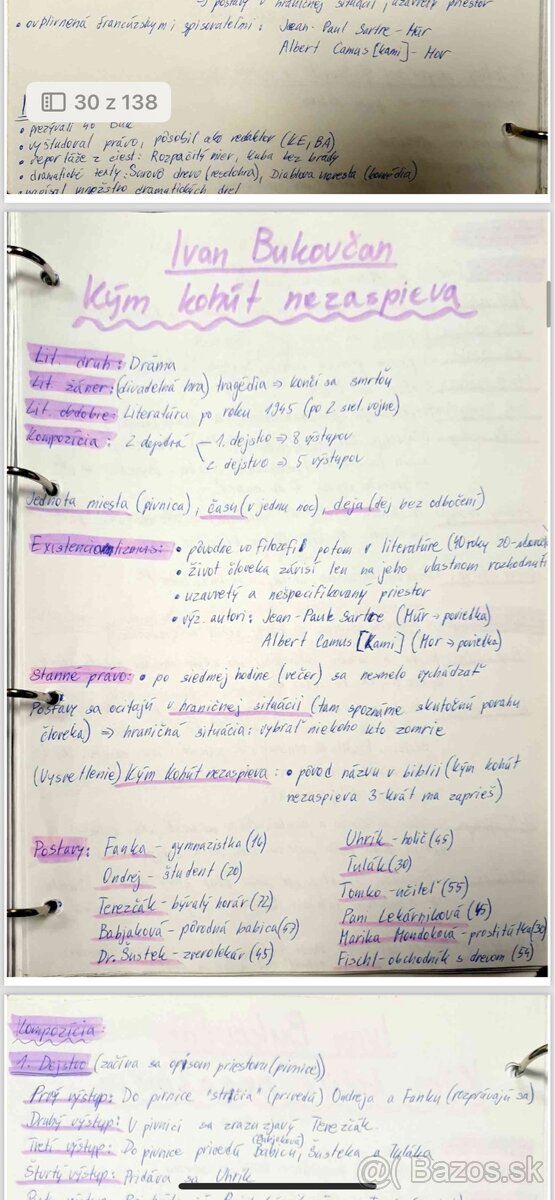 → postavy v hraničnej situácii, uzavretý priestor
• ovplyvnená francúzskymi spisovateľmi: Jean-Paul Sartre - Múr
Albert Camus [kami] - Mor
30 z 138
• prezývali ho Buk
• vyštudoval právo, pôsobil ako redaktor (KE, BA)
• reportáže z ciest: Rozpačitý mier, Kuba bez brady
• dramatické texty: Surovo drevo (veselohra), Diablova nevesta (komédia)
• napísal množstvo dramatických diel
Ivan Bukovčan
Kým kohút nezaspieva
Lit. druh: Dráma
Lit. žáner: (divadelná hra) tragédia ⇒ končí sa smrťou
Lit. obdobie: Literatúra po roku 1945 (po 2 svet. vojne)
Kompozícia: 2 dejstvá — 1. dejstvo ⇒ 8 výstupov
2. dejstvo ⇒ 5 výstupov
Jednota miesta (pivnica), času (v jednu noc), deja (dej bez odbočení)
Existencionalizmus: • pôvodne vo filozofií potom v literatúre (40 roky 20-
• život človeka závisí len na jeho vlastnom rozhodnutí
• uzavretý a nešpecifikovaný priestor
• výz. autori: Jean-Paule Sartre (Múr → poviedka)
Albert Camus [Kami] (Mor → poviedka)
Stanné právo: • po siedmej hodine (večer) sa nesmelo vychádzať
Postavy sa ocitajú v hraničnej situácií (tam spoznáme skutočnú povahu
človeka) ⇒ hraničná situácia: vybrať niekoho kto zomrie
(Vysvetlenie) Kým Kohút nezaspieva: • pôvod názvu v biblii (kým kohút
nezaspieva 3-krát ma zaprieš)
Postavy: Fanka - gymnazistka (16)
Ondrej - študent (20)
Terezčák - bývalý horár (72)
Babjaková - pôrodná babica (67)
Dr. Šustek - zverolekár (45)
Uhrík - holič (45)
Tulák (30)
Tomko - učiteľ (55)
Pani Lekárniková (45)
Marika Mondoková - prostitútka (30)
Fischl - obchodník s drevom (54)
Kompozícia:
1. Dejstvo (začína sa opisom priestoru (pivnice))
Prvý výstup: Do pivnice "strčia" (privedú) Ondreja a Fanku (rozprávajú sa)
Druhý výstup: V pivnici sa zrazu zjavý Terezčák.
Tretí výstup: Do pivnice privedú Babicu, (Babjaková) Šusteka a Tuláka
Štvrtý výstup: Pridáva sa Uhrík
@( Bazos.sk